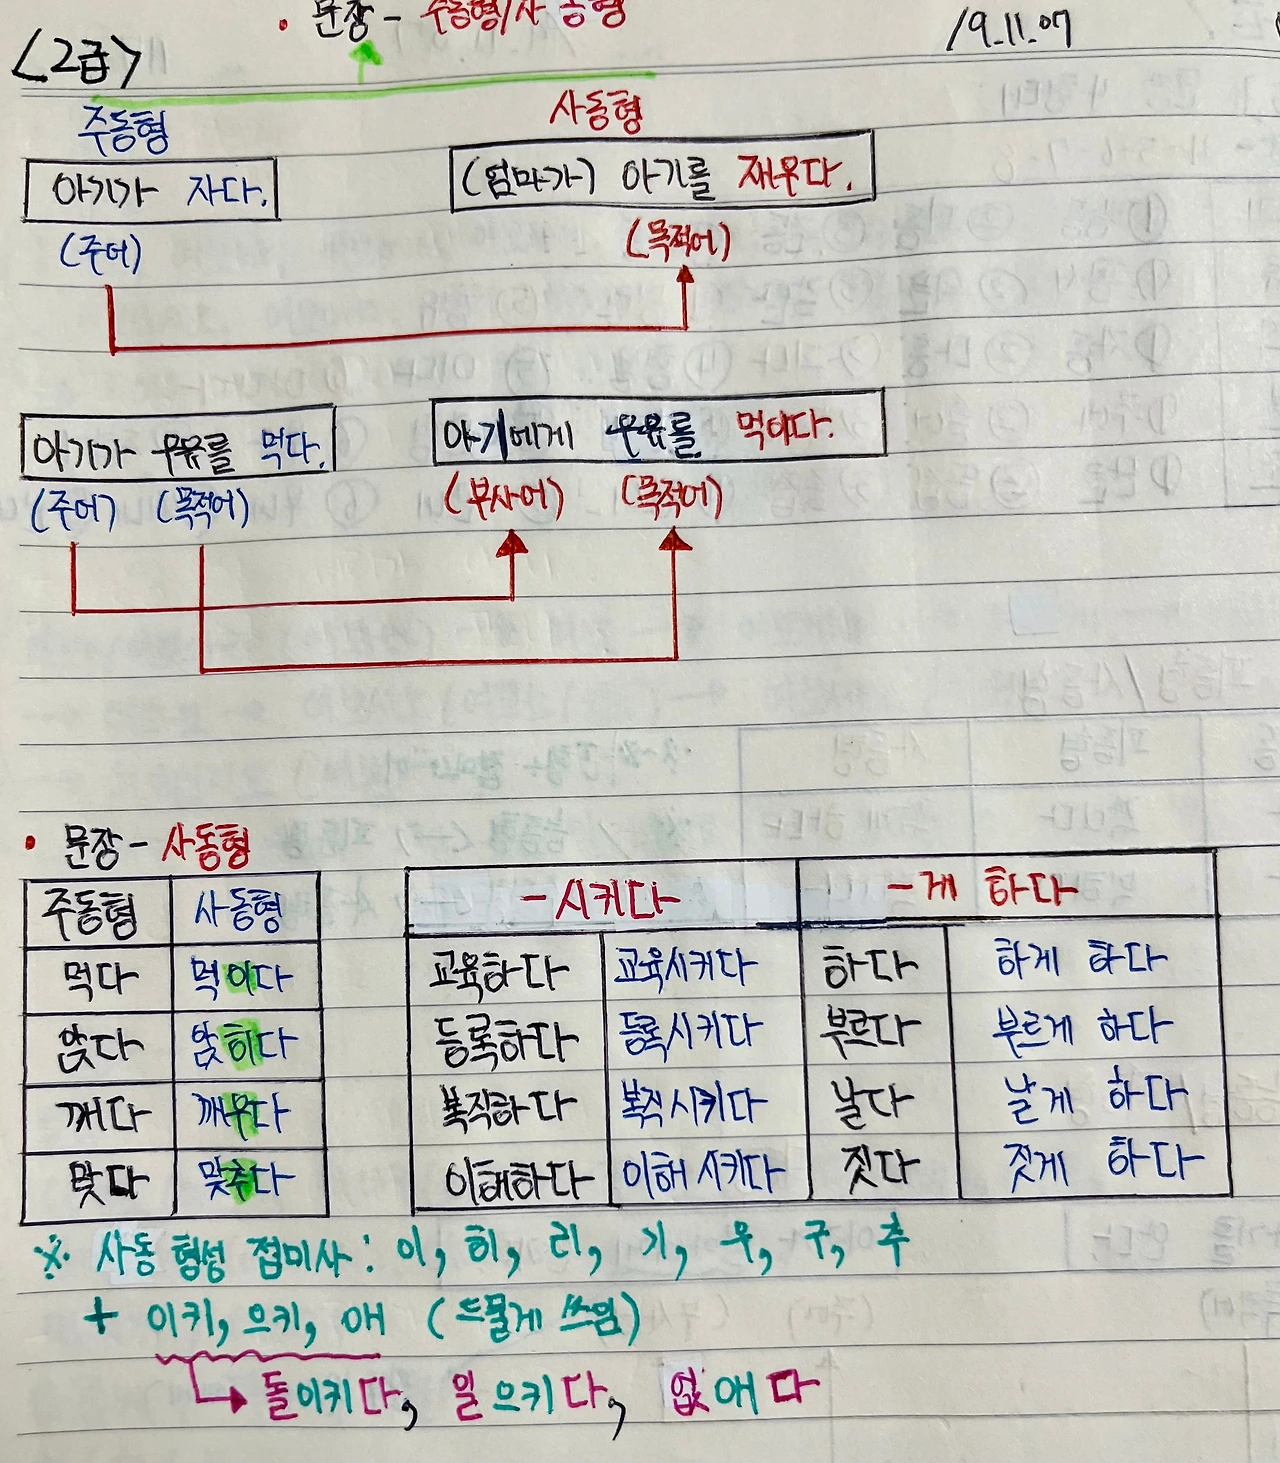 • 문장 - 주동형/사동형
19.11.07
<2급>
주동형 사동형
아기가 자다. (엄마가) 아기를 재우다.
(주어) (목적어)
아기가 우유를 먹다. 아기에게 우유를 먹이다.
(주어) (목적어) (부사어) (목적어)
• 문장 - 사동형
주동형 사동형 -시키다 -게 하다
먹다 먹이다 교육하다 교육시키다 하다 하게 하다
앉다 앉히다 등록하다 등록시키다 부르다 부르게 하다
깨다 깨우다 복직하다 복직시키다 날다 날게 하다
맞다 맞추다 이해하다 이해시키다 짓다 짓게 하다
※ 사동 형성 접미사 : 이, 히, 리, 기, 우, 구, 추
+ 이키, 으키, 애 (드물게 쓰임)
돌이키다, 일으키다, 없애다